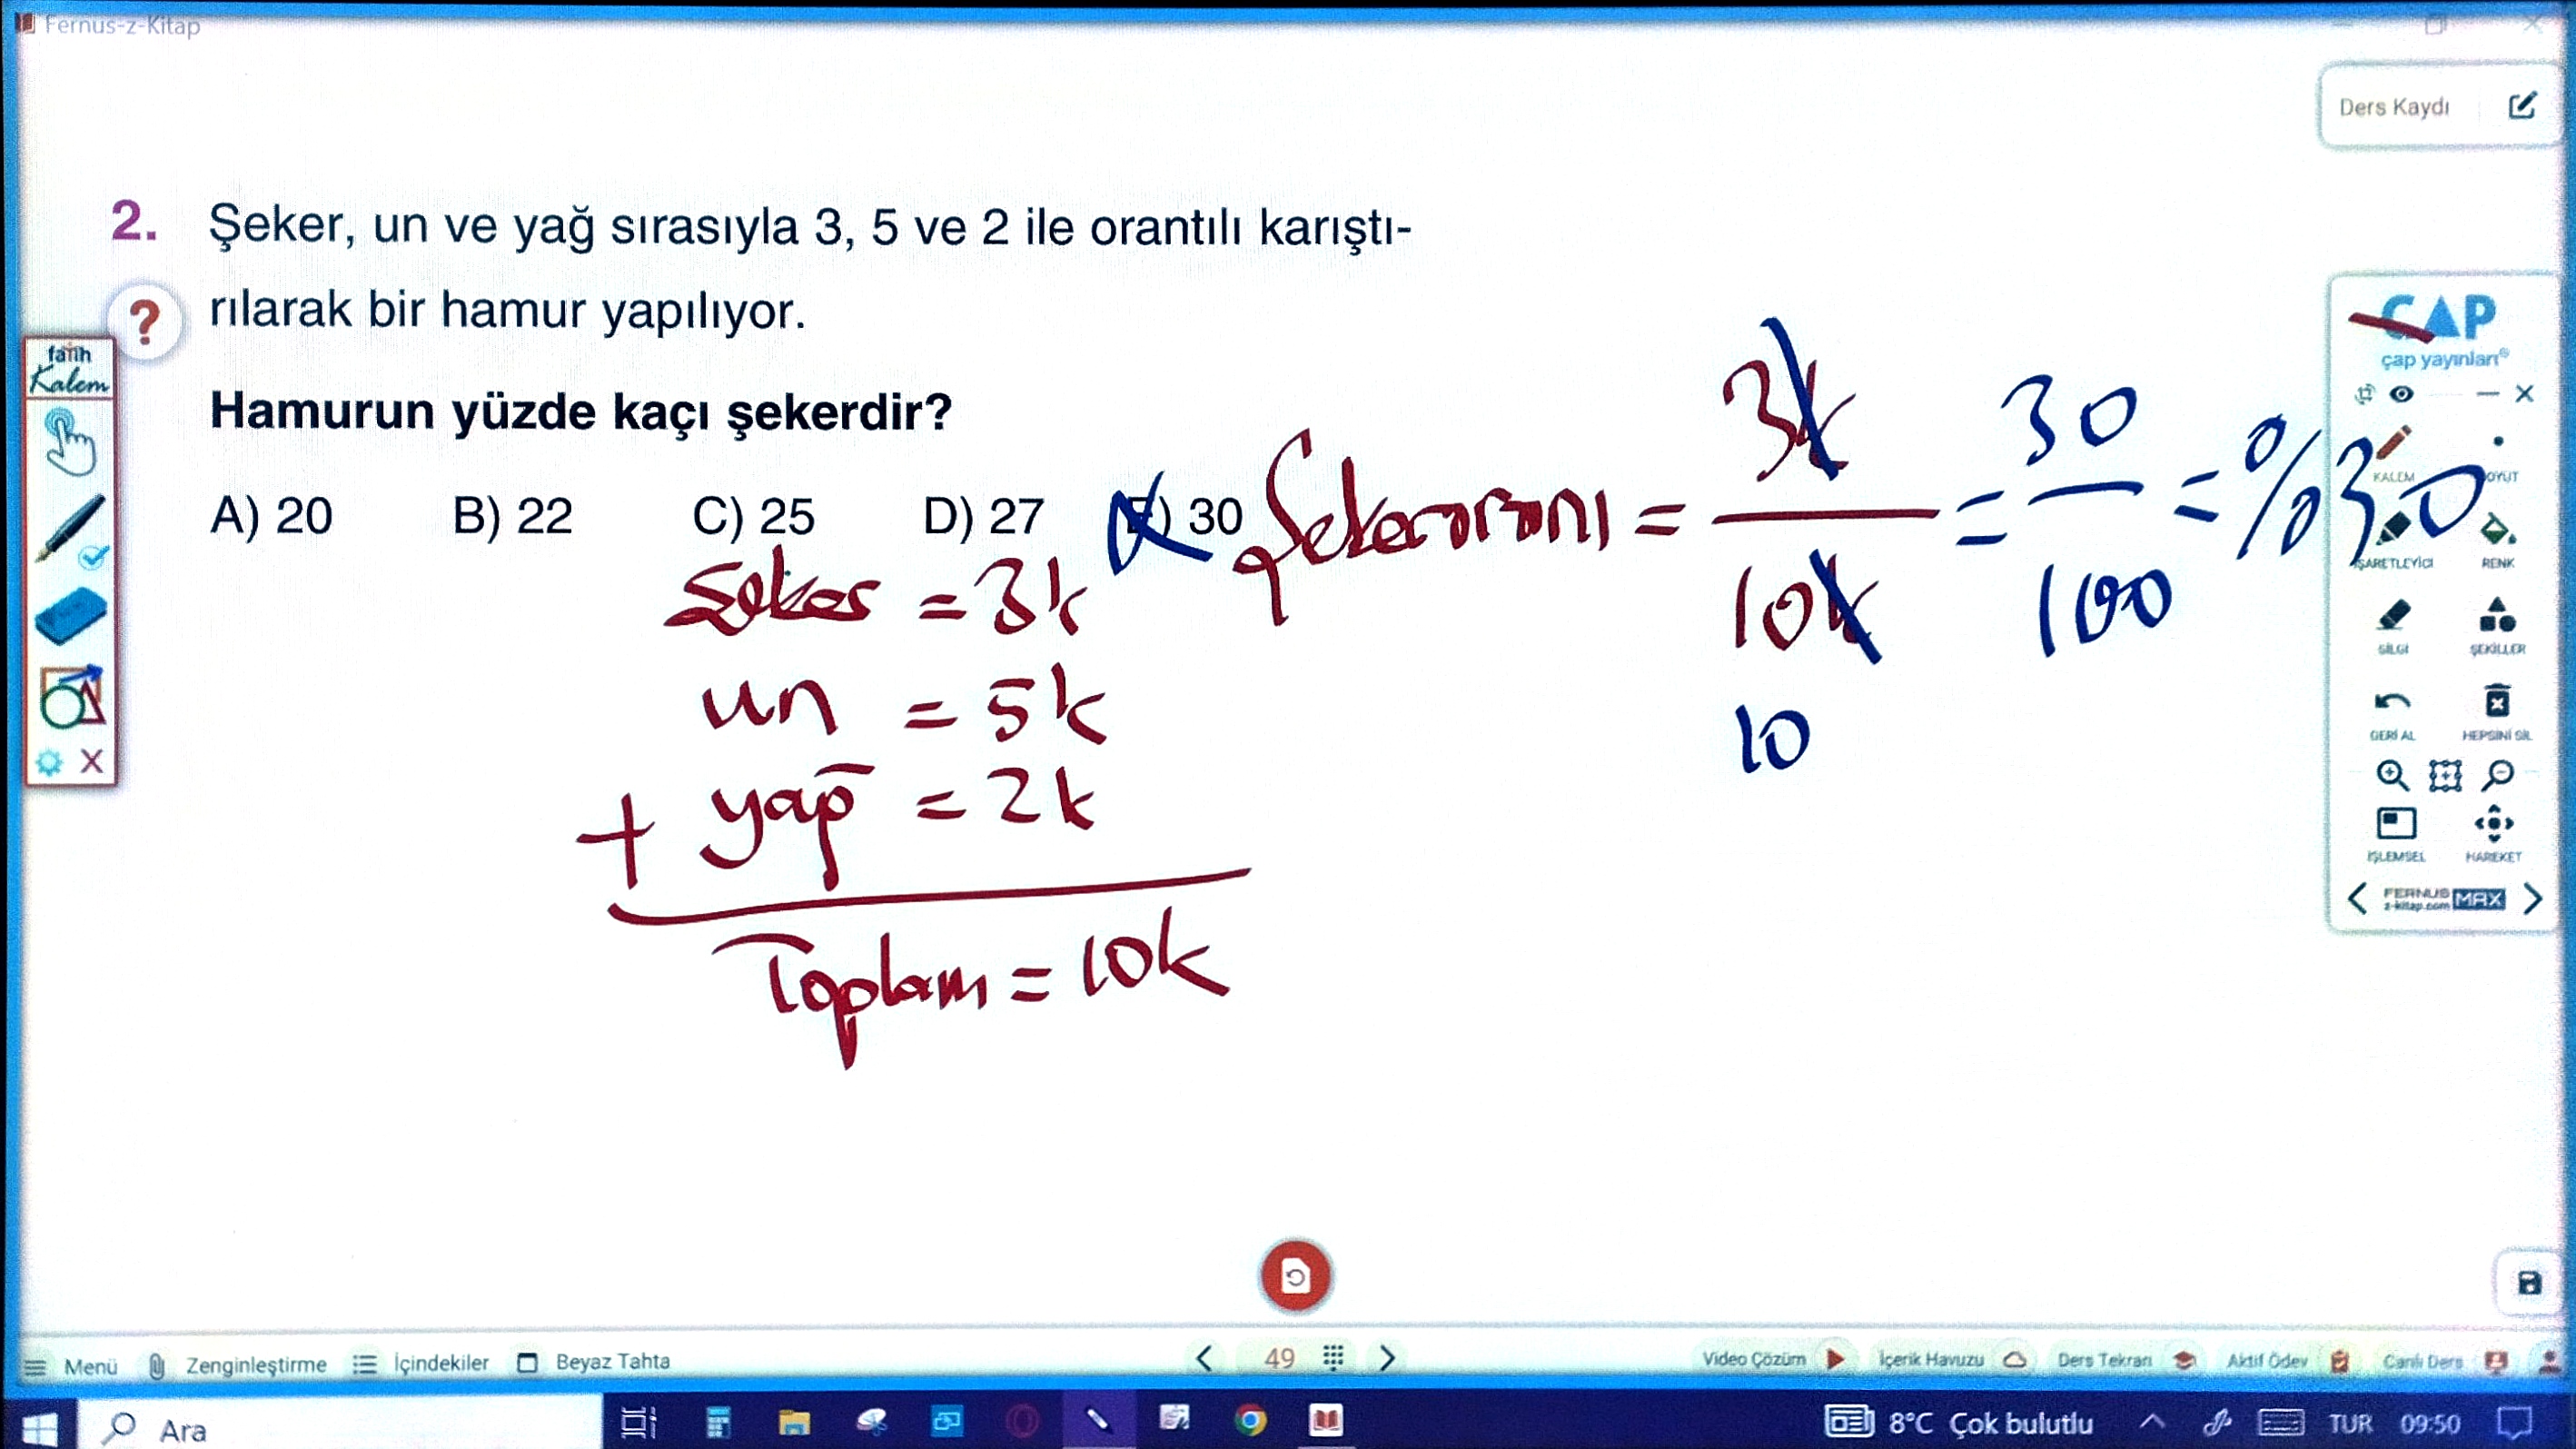 Fernus-z-Kitap
Ders Kaydı
2. Şeker, un ve yağ sırasıyla 3, 5 ve 2 ile orantılı karıştı-
rılarak bir hamur yapılıyor.
?
Hamurun yüzde kaçı şekerdir?
A) 20 B) 22 C) 25 D) 27 E) 30
Şeker oranı = 3k / 10k = 30 / 100 = %30
10
Şeker = 3k
un = 5k
+ yağ = 2k
Toplam = 10k
fatih
Kalem
ÇAP
çap yayınları
KALEM BOYUT
İŞARETLEYİCİ RENK
SİLGİ ŞEKİLLER
GERİ AL HEPSİNİ SİL
İŞLEMSEL HAREKET
FERNUS
z-kitap.com MAX
Menü Zenginleştirme İçindekiler Beyaz Tahta 49 Video Çözüm İçerik Havuzu Ders Tekrarı Aktif Ödev Canlı Ders
Ara 8°C Çok bulutlu TUR 09:50